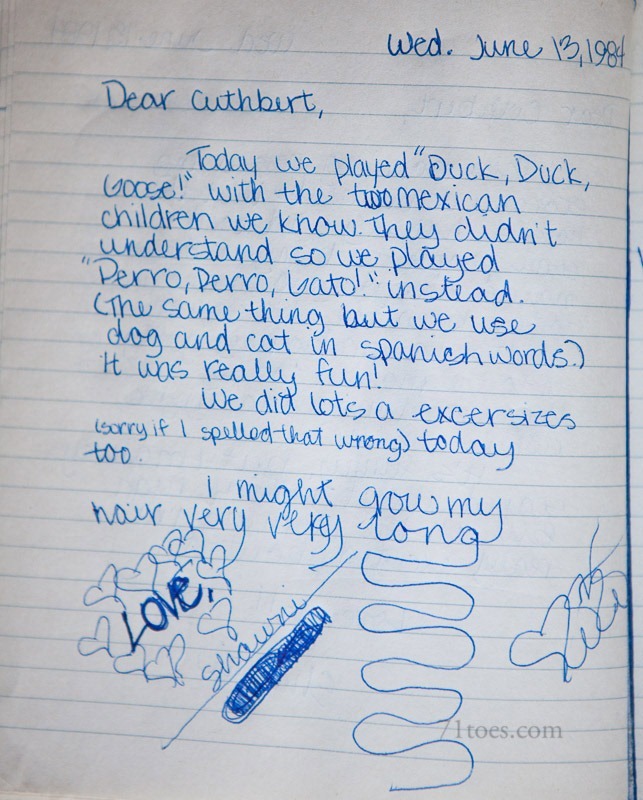 Wed. June 13, 1984
Dear Cuthbert,
Today we played "Duck, Duck,
Goose!" with the two mexican
children we know. They didn't
understand so we played
"Perro, Perro, Gato!" instead.
(The same thing but we use
dog and cat in spanish words.)
It was really fun!
We did lots a excersizes
(sorry if I spelled that wrong) today
too.
I might grow my
hair very very long
LOVE,
Shawni
71toes.com